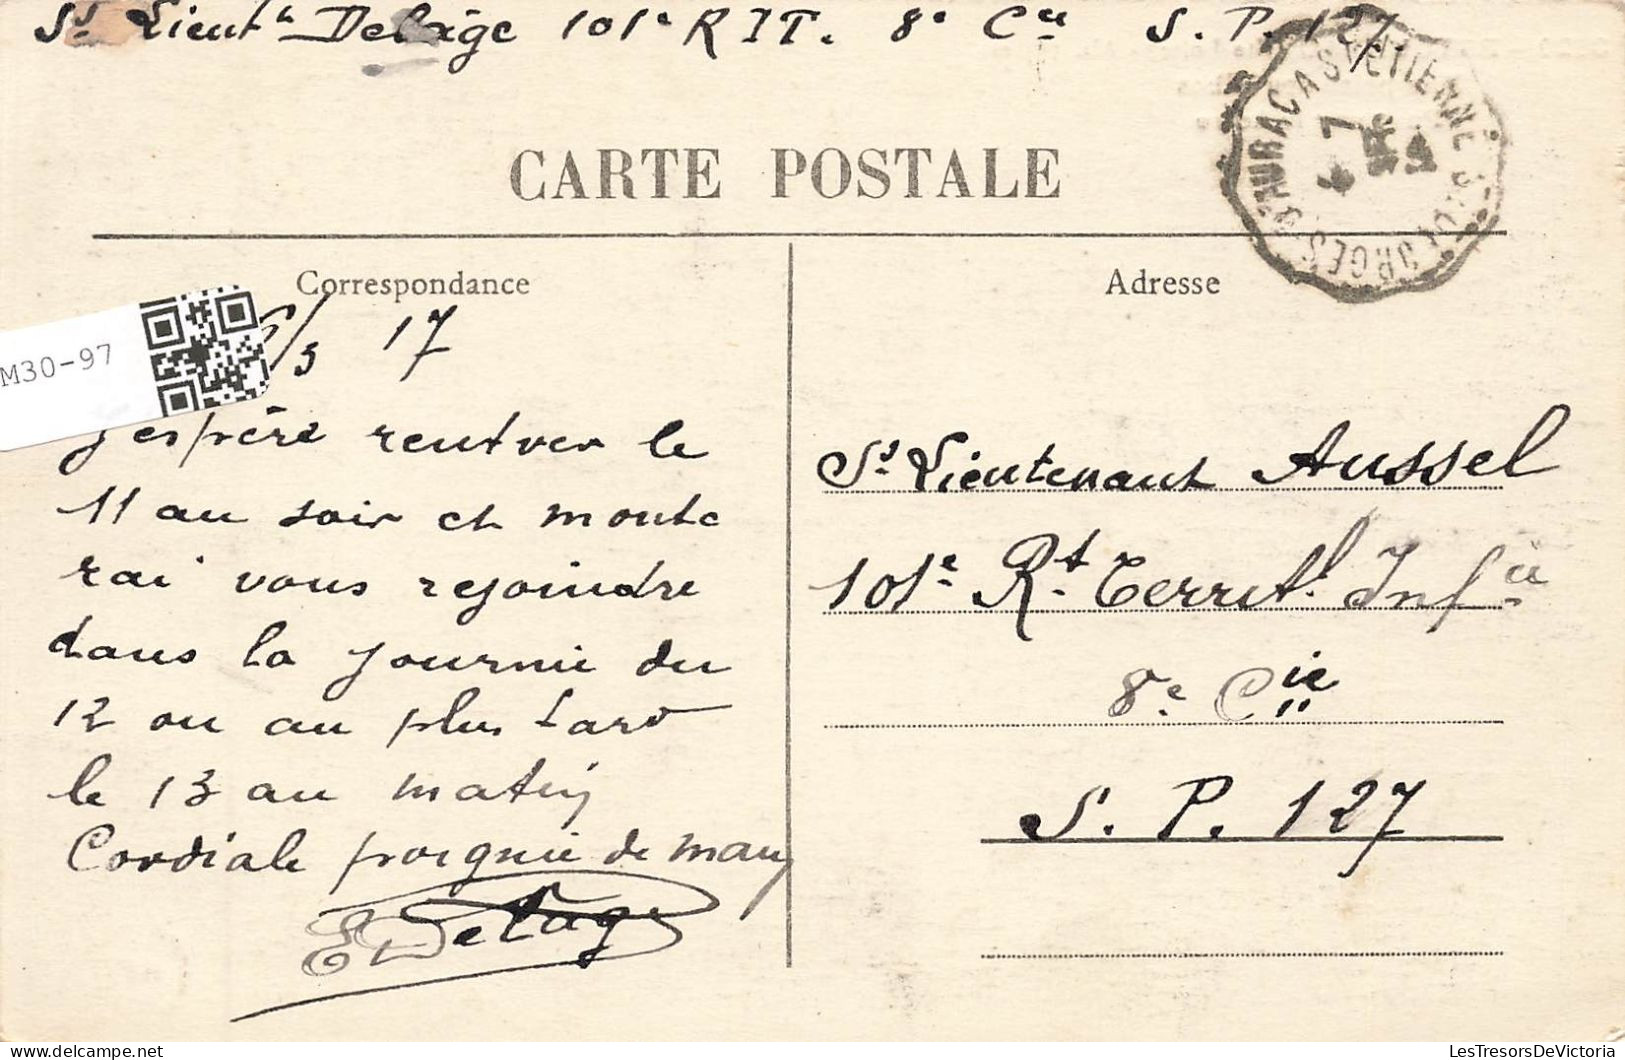 St Lieutt Delage 101e R I T. 8e Cie S. P. 127
ST GEORGES D'AURAC A ST ETIENNE
CARTE POSTALE
Correspondance
Adresse
M30-97
6/3 17
J'espère rentrer le
11 au soir et monte
rai vous rejoindre
dans la journée du
12 ou au plus tard
le 13 au matin
Cordiale poignée de main
E Delage
St Lieutenant Aussel
101e Rt Territl Infie
8e Cie
S. P. 127
LesTresorsDeVictoria